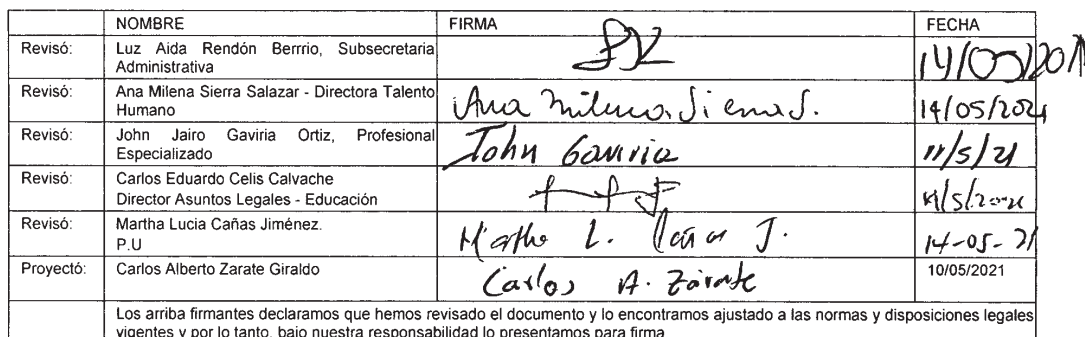 NOMBRE FIRMA FECHA
Revisó: Luz Aida Rendón Berrrio, Subsecretaria
Administrativa
Revisó: Ana Milena Sierra Salazar - Directora Talento
Humano Ana Milena Sierra S. 14/05/2021
Revisó: John Jairo Gaviria Ortiz, Profesional
Especializado John Gaviria 11/5/21
Revisó: Carlos Eduardo Celis Calvache
Director Asuntos Legales - Educación
Revisó: Martha Lucia Cañas Jiménez.
P.U Martha L. Cañas J. 14-05-21
Proyectó: Carlos Alberto Zarate Giraldo Carlos A. Zárate 10/05/2021
Los arriba firmantes declaramos que hemos revisado el documento y lo encontramos ajustado a las normas y disposiciones legales
vigentes y por lo tanto, bajo nuestra responsabilidad lo presentamos para firma